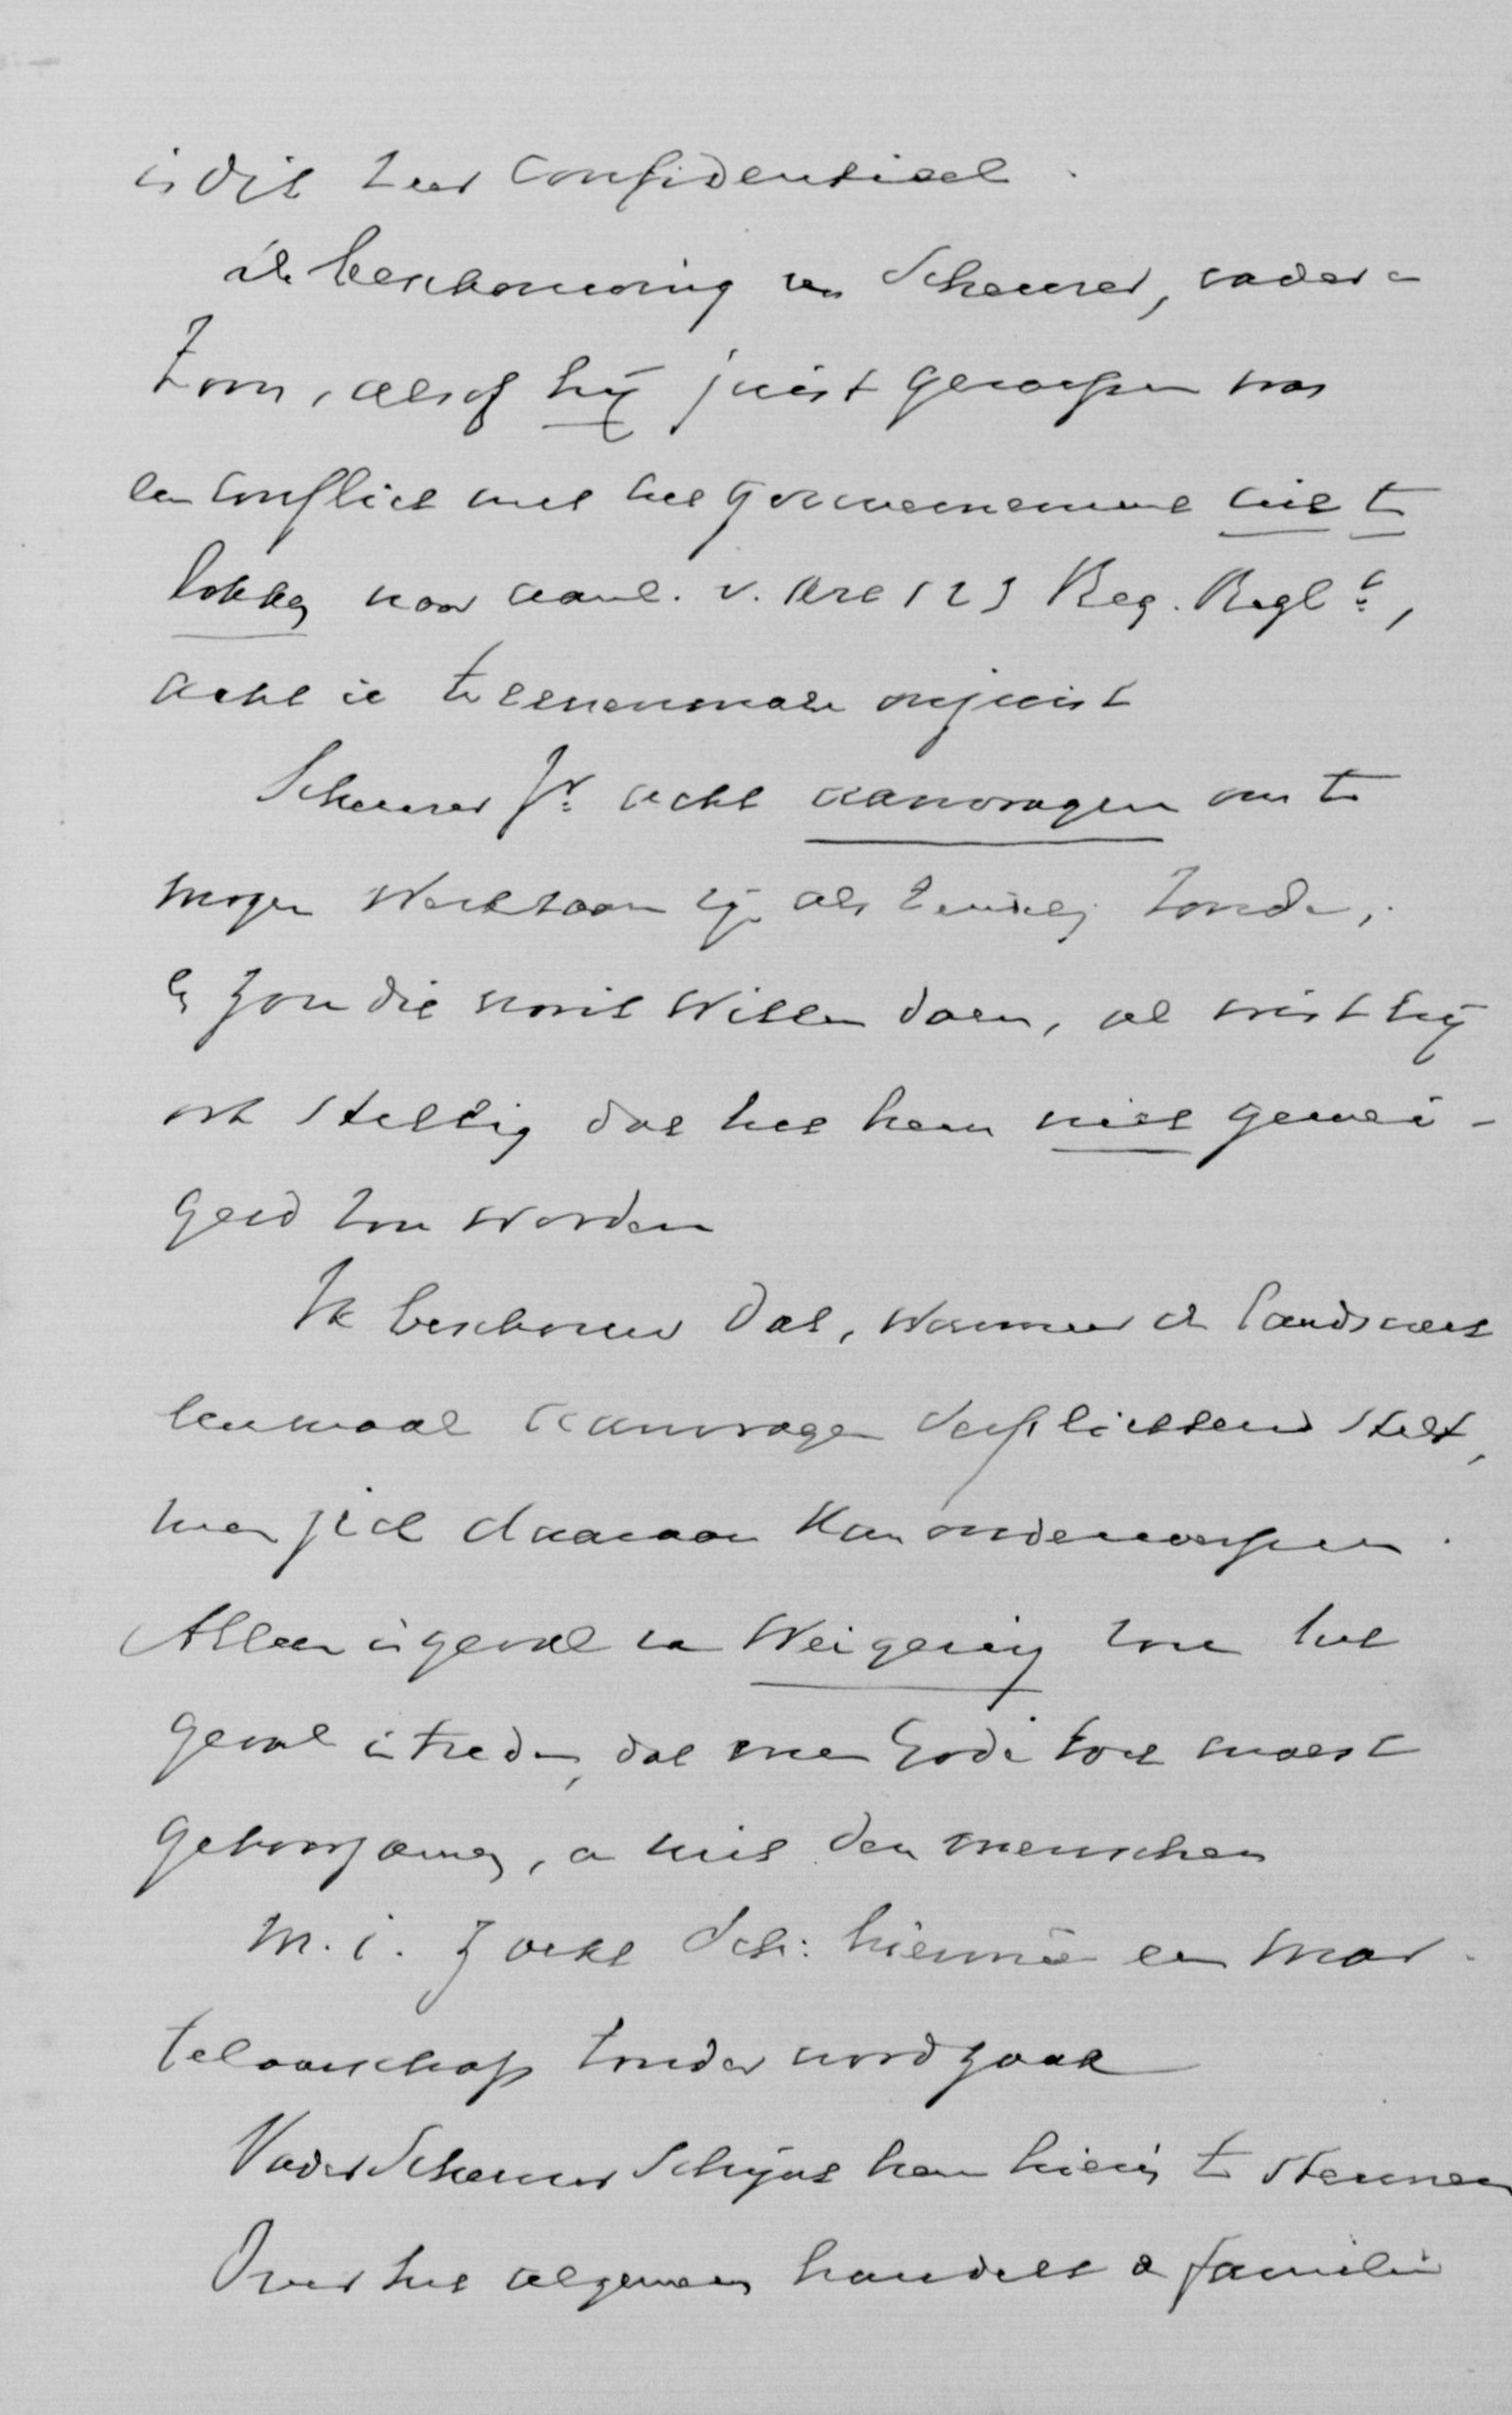 is dit zeer confidentieel.
de beschouwing van Scheurer, vader en
Zoon, alsof hij juist geroepen was
een conflict met het Gouvernement uit te
lokken naar aanl. v. Art 123 Reg. Reglt,
acht ik te eenenmale onjuist
Scheurer Jr. acht aanvragen om te
mogen werkzaam zijn als Zendeling Zonde,
en zou dit nooit willen doen, al wist hij
ook stellig dat het hem niet gewei-
gerd zou worden
Ik beschouw dat, wanneer de landswet
eenmaal aanvragen verplichtend stelt,
men zich daaraan kan onderwerpen.
Alleen in geval van Weigering zou het
geval intreden, dat men Gode toe moest
gehoorzamen, en niet den menschen
M. i. zoekt Sch: hiermeê een mar-
telaarschap zonder noodzaak
Vader Scheurer schijnt hem hierin te steunen
Over het algemeen handelt de familie